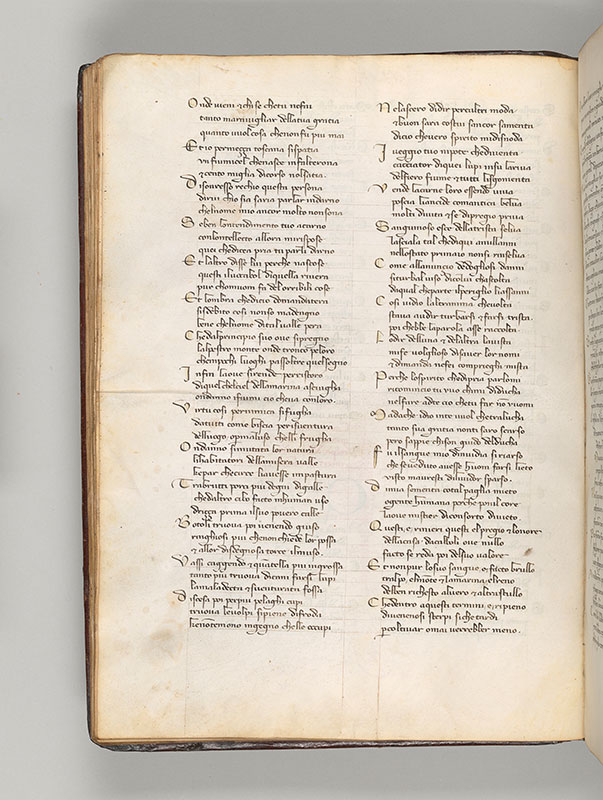 Onde vieni & chise chetu nefai
tanto maravigliar dellatua gratia
quanto vuol cosa chenonfu piu mai
Et io permeçça toscana sispatia
un fiumicel chenasce infalterona
& cento miglia dicorso nolsatia
Disovresso rechio questa persona
dirui chio sia saria parlar indarno
chelnome mio ancor molto nonsona
Se ben lontendimento tuo acarno
conlontellecto allora mirispose
quei chediceva pria tu parli darno
Et laltro disse lui perche nascose
questi iluocabol diquella rivera
pur chomuom fa del orribili cose
Et lombra chedicio demandatera
sisdebito cosi nonso madegno
bene chelnome dital valle pera
Chedalprincipio suo ove sipregno
lalpestro monte onde tronco peloro
chempochi luoghi passoltre quelsegno
Infin lauve sirende perristoro
diquel chelciel dellamarina asciugha
ondanno ifiumi cio cheva conloro
Vertu cosi pernimica sifugha
datutti come biscia persventura
delluogo opmaluso chelli frugha
Ondanno simutata lor natura
lihabitatori dellamisera valle
chepar checirce liavesse impastura
Trabrutti porci piu degni digalle
chedaltro cibo facto inhuman uso
driçça prima ilsuo povero calle
Botoli truova poi venendo giuso
ringhiosi piu chenonchiede lor possa
& allor disdegnosa torce ilmuso
Vassi caggendo & quantella piu ingrossa
tanto piu truova dicani farsi lupi
lamaladecta & sventurata fossa
Discesa poi perpiu pelaghi cupi
truova levolpi sipiene difroda
chenontemono ingegno chelle occupi
Nelascero didir perchaltri moda
& buon sara costui sancor samenta
dicio chevero spirito midisnoda
Iveggio tuo nipote chediventa
cacciator diquei lupi insu lariva
delfiero fiume & tutti lisgomenta
Vende lacarne loro essendo viva
poscia liancide comantica belva
molti divita & se dipregio priva
Sanguinoso esce dellatrista selva
lasciala tal chediqui amillanni
nellostato primaio nonsi rinselva
Come allanuncio dedogliosi danni
siturbal viso dicolui chascolta
daqual cheparte ilperiglio liassanni
Cosi vidio laltranima chevolta
stava audir turbarsi & farsi trista
poi chebbe laparola asse raccolta
Lodir delluna & delaltra lavista
mife voglioso disaver lor nomi
& dimanda nefei conprieghi mista
Perche lospirito chedipria parlomi
ricomincio tu vuoi chimi diduchi
nelfare adte cio chetu far non vuomi
Madache idio inte vuol chetralucha
tanto sua gratia nonti saro scarso
pero sappie chison guido delducha
Fu ilsangue mio dinvidia siriarso
che seveduto avesse huom farsi lieto
visto mavresti dilividor sparso
Dimia sementa cotal paglia mieto
ogente humana perche ponil core
lauve mistier diconsorto diveto
Questi e rinieri questi elpregio & lonore
dellacasa dacalboli ove nullo
facto se reda poi delsuo valore
Et nonpur losuo sangue e facto brullo
tralpo elmonte & lamarina elreno
delben richesto alvero & altrastullo
Chedentro aquesti termini e ripieno
divenenosi sterpi siche tardi
percoltivar omai verrebber meno